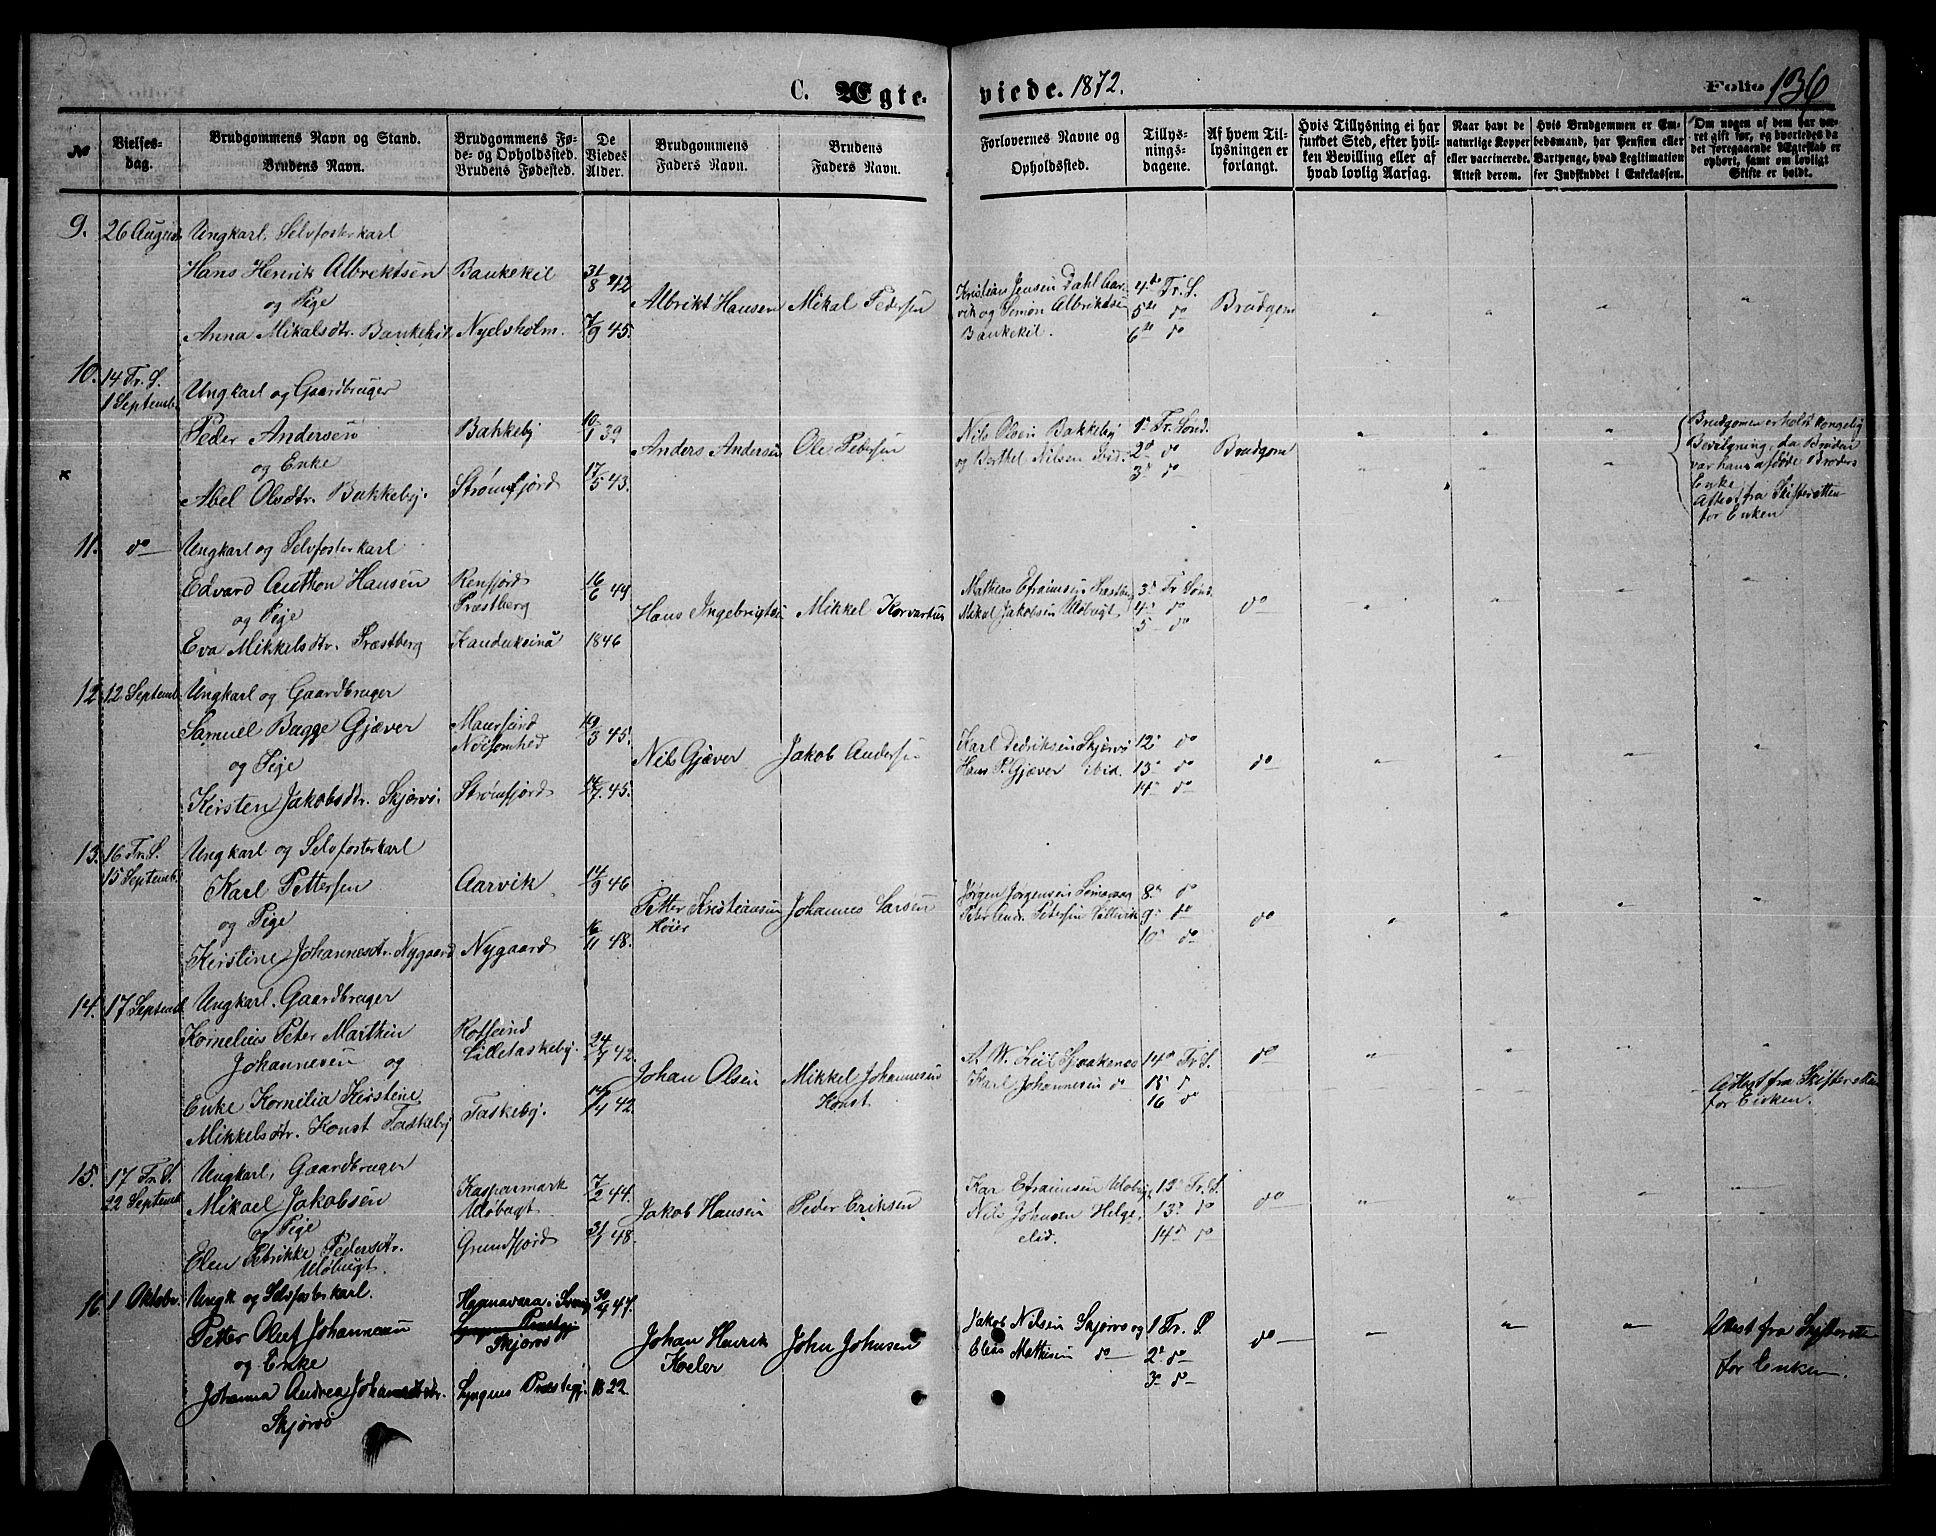 C. Ægte-
viede. 1872.
Folio 136
No
Vielses-
dag.
Brudgommens Navn og Stand.
Brudens Navn.
Brudgommens Fø-
de- og Opholdssted.
Brudens Fødested.
De
Viedes
Alder.
Brudgommens
Faders Navn.
Brudens
Faders Navn.
Forlovernes Navne og
Opholdssted.
Tillys-
nings-
dagene.
Af hvem Til-
lysningen er
forlangt.
Hvis Tillysning ei har
fundet Sted, efter hvil-
ken Bevilling eller af
hvad lovlig Aarsag.
Naar havt de
naturlige Kopper
eller vaccinerede.
Attest derom.
Hvis Brudgommen er Em-
bedsmand, har Pension eller
Vartpenge, hvad Legitimation
for Indskuddet i Enkekassen.
Om nogen af dem har væ-
ret gift før, og hvorledes da
det foregaaende Ægteskab er
ophørt, samt om lovligt
Skifte er holdt.
9. 26 August
Ungkarl. Selvfosterkarl
Hans Henrik Albrektsen
og Pige
Anna Mikalsdtr. Bankekil
Bankekil
Nyelvholm.
31/8 42
7/9 45.
Albrikt Hansen
Mikal Pedersen
Kristian Jensen Dahl Aar-
vik og Simon Albriktsen
Bankekil.
4de Tr. S.
5te do
6te do
Brudgom
10. 14 Tr. S.
1 Septemb.
Ungkarl og Gaardbruger
Peder Andersen
og Enke
Abel Olsdtr. Bakkeby.
Bakkeby
Strømfjord
10/1 39
17/5 43.
Anders Andersen
Ole Pedersen
Nils Olsen Bakkeby
og Berthel Nilsen ibid.
1ste Tr. Sønd.
2d do
3d do
Brudgom
Brudgomen erholdt kongelig
Bevilgning, da Bruden
var hans afdøde Broders
Enke
Attest fra Skifteretten
for Enken
11. do
Ungkarl og Selvfosterkarl
Edvard Anthon Hansen
og Pige
Eva Mikkelsdtr. Præstberg
Renfjord
Præstberg
16/6 49
1846
Hans Ingebrigtsen
Mikkel
Mathias Efraimsen
Mikal Jakobsen Uløbugt
3d Tr. Sønd.
4d do
5 do
do
12. 12 Septemb.
Ungkarl og Gaardbruger
Samuel Bagge Gjæver
og Pige
Kirsten Jakobsdtr. Skjærvø.
Maursund
Nøisomhed
Strømfjord
19/3 45.
45.
Nils Gjæver
Jakob Andersen
Karl Dedriksen Skjærvø
Hans P. Gjæver ibid.
12 do
13 do
14 do
do
13. 16 Tr. S.
15 Septemb.
Ungkarl og Selvfosterkarl
Karl Pettersen
og Pige
Kirstine Johannesdtr. Nygaard
Aarvik
Nygaard
14/9 46
16/11 48.
Petter Kristiansen
Høier
Johannes Larsen
Jørgen Jørgensen
Peter Andr. Petersen
8 do
9 do
10 do
do
14. 17 Septemb.
Ungkarl. Gaardbruger
Kornelius Peter Marthin
Johannesen og
Enke Kornelia Kirstine
Mikkelsdtr. Konst Taskeby
Rotsund
Lilletaskeby.
Taskeby.
24/7 42.
42.
Johan Olsen
Mikkel Johannesen
Konst.
A. W. Kiil Spaakenes
Karl Johannesen do
14d Tr. S.
15 do
16 do
do
Attest fra Skifteretten
for Enken.
15. 17 Tr. S.
22 Septemb.
Ungkarl, Gaardbruger
Mikael Jakobsen
og Pige
Elen Petrikke Pedersdtr.
Uløbugt.
Kaspermark
Uløbugt
Grundfjord
7/2 44.
31/1 48.
Jakob Hansen
Peder Eriksen
Kar Efraimsen Uløbugt
Nils Johnsen Helge-
12 Tr. S.
13 do
14 do
do
16. 1 Oktobr.
Ungk og Selvfosterkarl.
Petter Oluf Johannsen
og Enke
Johanna Andrea Johannesdtr.
Skjærvø
Skjærvø
Lyngens Præstegj.
30/4 47.
1822.
Johan Henrik
Koeler
John Johnsen
Jakob Nilsen Skjærvø og
Elias Mathisen do
1 Tr. S.
2d do
3d do
do
Attest fra Skifteretten
for Enken.